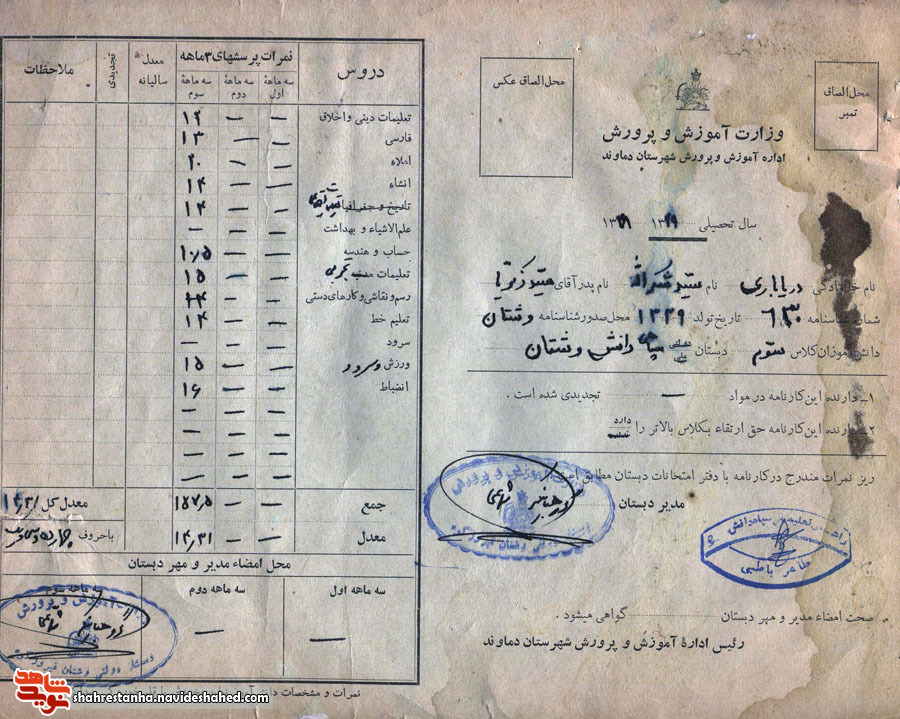 محل الصاق عکس
محل الصاق تمبر
وزارت آموزش و پرورش
اداره آموزش و پرورش شهرستان دماوند
سال تحصیلی
نام خانوادگی دریاباری نام سید نام پدر آقای سید زکریا
شماره شناسنامه ۶۳۰ تاریخ تولد ۱۳۳۹ محل صدور شناسنامه وشتان
دانش آموزان کلاس سوم دبستان سپاهی دانش وشتان
۱ــ دارنده این کارنامه در مواد — تجدیدی شده است .
۲ــ دارنده این کارنامه حق ارتقاء بکلاس بالاتر را دارد
ریز نمرات مندرج در کارنامه با دفتر امتحانات دبستان مطابق است
مدیر دبستان
راهنمای تعلیماتی سپاه دانش
طاهر باطبی
صحت امضاء مدیر و مهر دبستان گواهی میشود .
رئیس ادارهٔ آموزش و پرورش شهرستان دماوند
دروس نمرات پرسشهای ۳ ماهه معدل سالیانه تجدیدی ملاحظات
سه ماههٔ اول سه ماههٔ دوم سه ماههٔ سوم
تعلیمات دینی و اخلاق — — ۱۲
فارسی — — ۱۳
املاء — — ۲۰
انشاء — — ۱۴
تاریخ و جغرافیا — — ۱۴
علم الاشیاء و بهداشت — — —
حساب و هندسه — — ۱۰٫۵
تعلیمات تجربی — — ۱۵
رسم و نقاشی و کارهای دستی — —
تعلیم خط — — ۱۴
سرود — — —
ورزش و سرود — — ۱۵
انضباط — — ۱۶
— — —
— — —
— — —
— — —
جمع — — ۱۵۷٫۵ معدل کل
معدل — — ۱۴٫۳۱ با حروف
محل امضاء مدیر و مهر دبستان
سه ماهه اول سه ماهه دوم سه ماهه سوم
— —
نمرات و مشخصات
شاهد
نوید
shahrestanha.navideshahed.com